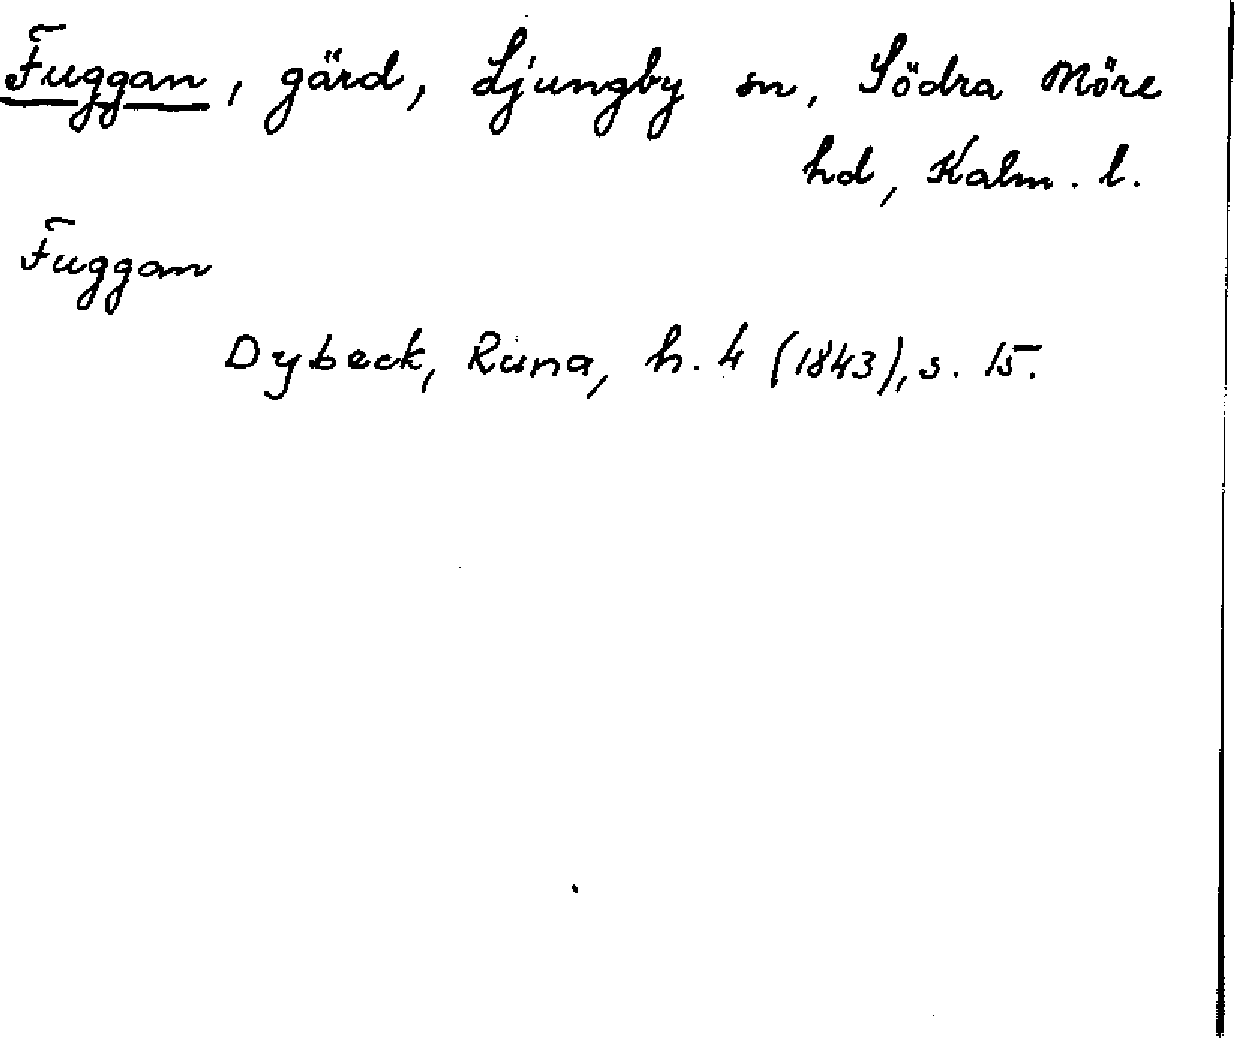 Fuggan, gärd, Ljungby sn, Södra Möre
hd, Kalm. l.
Fuggan
Dybeck, Runa, h. 4 (1843), s. 15.